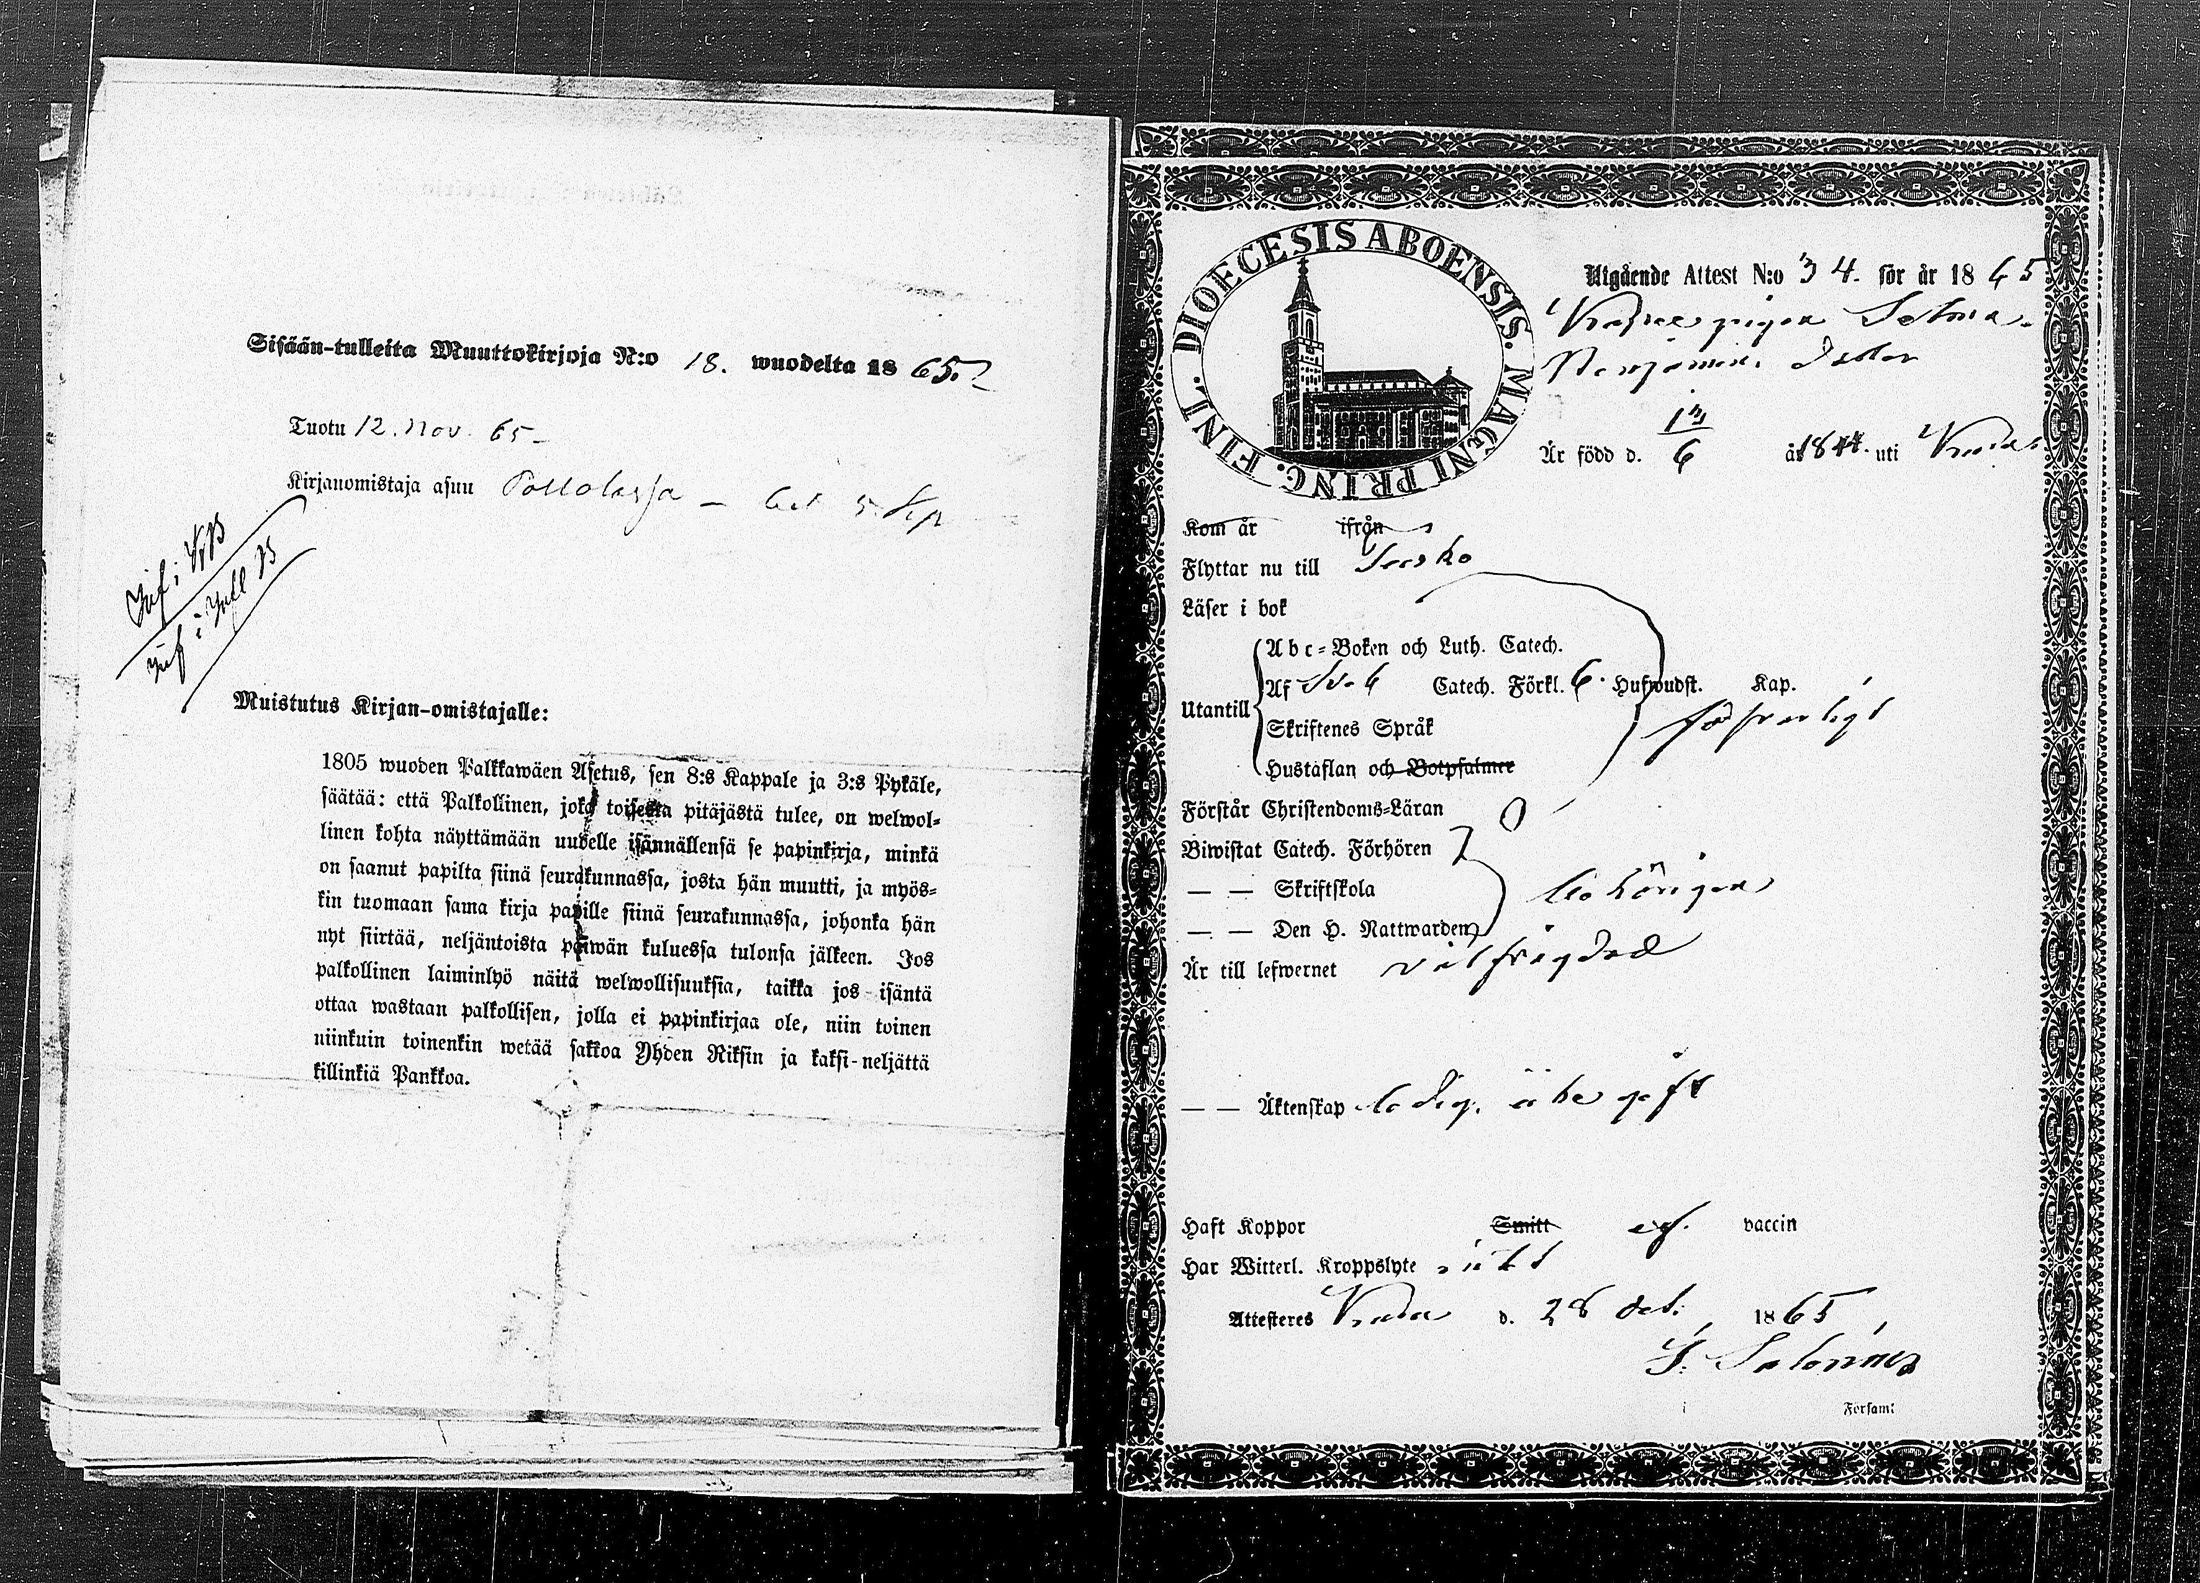 Sisään-tulleita Muuttokirjoja N:o 18. wuodelta 1865.
Tuotu 12. Nov. 65
Kirjanomistaja asuu
Inf. i
Inf. i
Muistutus Kirjan-omistajalle:
1805 wuoden Palkkawäen Asetus, sen 8:s Kappale ja 3:s Pykäle,
säätää: että Palkollinen, joka toisesta pitäjästä tulee, on welwol-
linen kohta näyttämään uudelle isännällensä se papinkirja, minkä
on saanut papilta siinä seurakunnassa, josta hän muutti, ja myös-
kin tuomaan sama kirja papille siinä seurakunnassa, johonka hän
nyt siirtää, neljäntoista päiwän kuluessa tulonsa jälkeen. Jos
palkollinen laiminlyö näitä welwollisuuksia, taikka jos isäntä
ottaa wastaan palkollisen, jolla ei papinkirjaa ole, niin toinen
niinkuin toinenkin wetää sakkoa Yhden Riksin ja kaksi-neljättä
killinkiä Pankkoa.
DIOECESIS ABOENSIS. MAGNI PRINC. FINL.
Utgående Attest N:o 34. för år 1865
pigan Selma
Benjamins. Dotter
Är född d. 13/6 år 1844. uti
Kom år ifrån
Flyttar nu till
Läser i bok
Abc-Boken och Luth. Catech.
Utantill Af Sv. 6 Catech. Förkl. 6. Hufwudst. Kap.
försvarligt
Skriftenes Språk
Hustaflan och Botpsalmer
Förstår Christendoms-Läran
Biwistat Catech. Förhören
— — Skriftskola behörigen
— — Den H. Nattwarden
Är till lefwernet välfrägdad
— — Äktenskap ledig. att be gift
Haft Koppor Smitt eg. vaccin
Har Witterl. Kroppslyte intet
Attesteres d. 28 Oct. 1865
Salonius
i Forsaml